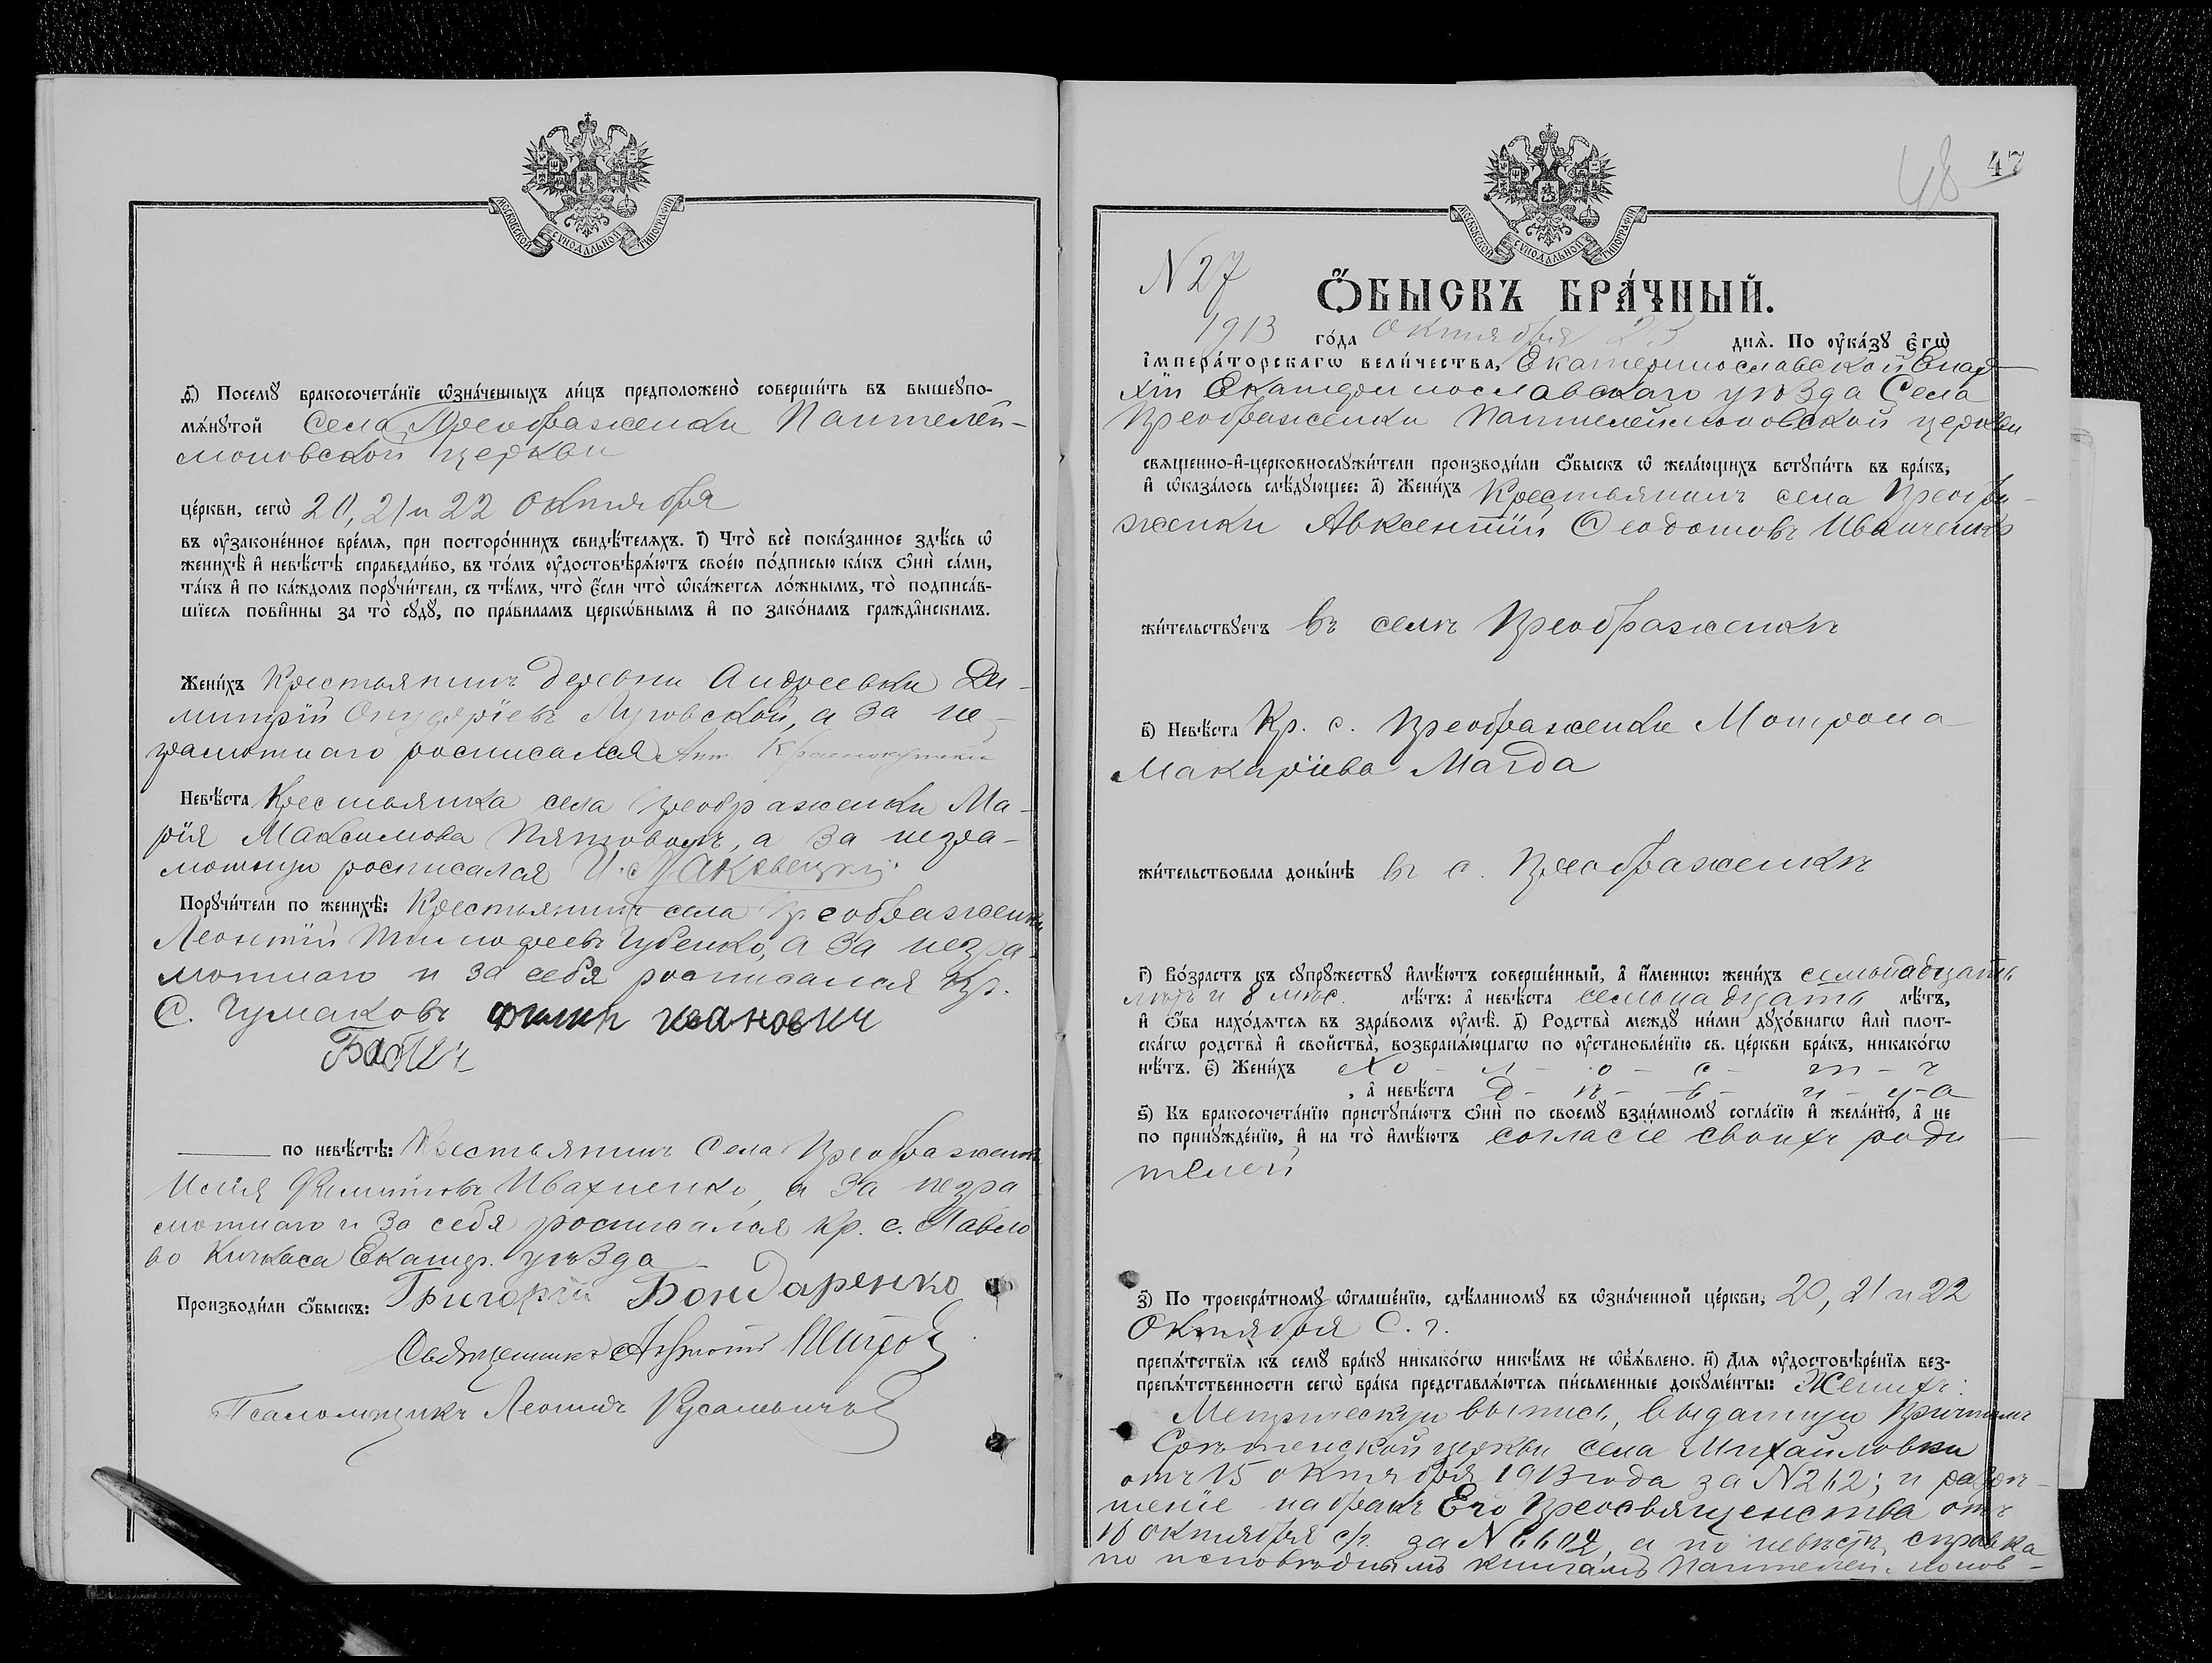 МОСКОВСКОЙ СѴНОДАЛЬНОЙ ТИПОГРАФІИ
д҃) Посемꙋ бракосочета́нїе ѡ҆зна́ченныхъ ли́цъ предположено̀ соверши́ть въ вышеꙋпо-
мѧ́нꙋтой Села Преображенки Пантелей-
моновской церкви
це́ркви, сегѡ̀ 20, 21 и 22 Октября
въ оу҆законе́нное вре́мѧ, при посторо́ннихъ свидѣ́телѧхъ. і҃) Что̀ всѐ пока́занное здѣ́сь ѡ҆
женихѣ̀ и҆ невѣ́стѣ справедли́во, въ то́мъ оу҆достовѣрѧ́ютъ свое́ю по́дписью ка́къ ѻ҆нѝ са́ми,
та́къ и҆ по ка́ждомъ порꙋчи́тели, съ тѣ́мъ, что̀ є҆́сли что̀ ѡ҆ка́жетсѧ ло́жнымъ, то̀ подписа́в-
шїесѧ пови́нны за то̀ сꙋдꙋ̀, по пра́виламъ церкѡ́внымъ и҆ по зако́намъ гражда̑нскимъ.
Жени́хъ Крестьянинъ деревни Андреевки Ди-
митрій Луговской, а за не-
грамотнаго росписался
Невѣ́ста Крестьянка села Преображенки Ма-
рія Максимова а за негра-
мотную росписался И.
Порꙋчи́тели по женихѣ̀: Крестьянинъ села Преображенки
Леонтій Тимофеевъ Губенко, а за негра-
мотнаго и за себя росписался кр.
С. Чумаковъ Иванович
Бабич
по невѣ́стѣ: Крестьянинъ Села Преображенки
Ивахненко, а за негра-
мотнаго и за себя росписался кр. с. Павло
во Кичкаса Екатер. уѣзда
Производи́ли ѻ҆́быскъ: Григорій Бондаренко
Священникъ
Псаломщикъ Леонидъ
48 47
МОСКОВСКОЙ СѴНОДАЛЬНОЙ ТИПОГРАФІИ
N 27
Ѻ҆́БЫСКЪ БРА́ЧНЫЙ.
1913 го́да Октября 23 днѧ̀. По оу҆ка́зꙋ є҆гѡ̀
і҆мпера́торскагѡ вели́чества, Екатеринославской Епар-
хіи Екатеринославскаго уѣзда Села
Преображенки Пантелеймоновской церкви
свѧще́нно-и҆-церковнослꙋжи́тели производи́ли ѻ҆́быскъ ѡ҆ жела́ющихъ встꙋпи́ть въ бра́къ,
и҆ ѡ҆каза́лось слѣ́дꙋющее: а҃) Жени́хъ Крестьянинъ села Преобра-
женки Авксентій Ѳеодотовъ Иванченко
жи́тельствꙋетъ въ селѣ Преображенкѣ
в҃) Невѣ́ста Кр. с. Преображенки Матрона
Макаріева Магда
жи́тельствовала доны́нѣ въ с. Преображенкѣ
г҃) Во́зрастъ къ сꙋпрꙋ́жествꙋ и҆мѣ́ютъ соверше́нный, а҆ и҆́меннѡ: жени́хъ семьнадцать
лѣтъ и 8 мѣс. лѣ́тъ: а҆ невѣ́ста семьнадцать лѣ́тъ,
и҆ ѻ҆́ба нахо́дѧтсѧ въ здра́вомъ оу҆мѣ̀. д҃) Родства̀ междꙋ̀ ни́ми дꙋхо́внагѡ и҆лѝ плот-
ска́гѡ родства̀ и҆ свойства̀, возбранѧ́ющагѡ по оу҆становле́нїю св. це́ркви бра́къ, никако́гѡ
нѣ́тъ. є҃) Жени́хъ Хо - л - о - с - т - ъ
, а҆ невѣ́ста д - ѣ - в - и - ц - а
ѕ҃) Къ бракосочета́нїю пристꙋпа́ютъ ѻ҆нѝ по своемꙋ̀ взаи́мномꙋ согла́сїю и҆ жела́нїю, а҆ не
по принꙋжде́нїю, и҆ на то̀ и҆мѣ́ютъ согласіе своихъ роди
телей
з҃) По троекра́тномꙋ ѡ҆глаше́нїю, сдѣ́ланномꙋ въ ѡ҆зна́ченной це́ркви, 20, 21 и 22
Октября с. г.
препѧ́тствїѧ къ семꙋ̀ бра́кꙋ никако́гѡ никѣ́мъ не ѡ҆б̾ѧ́влено. и҃) Длѧ̀ оу҆достовѣре́нїѧ без-
препѧ́тственности сегѡ̀ бра́ка представлѧ́ютсѧ пи́сьменные докꙋме́нты: Женихъ:
Метрическую выпись, выданную Причтомъ
Срѣтенской церкви села Михайловки
отъ 15 октября 1913 года за N 262; и разрѣ-
шеніе на бракъ Его Преосвященства отъ
18 октября с/г. за N а по невѣстѣ справка
по исповѣднымъ книгамъ Пантелеймонов-